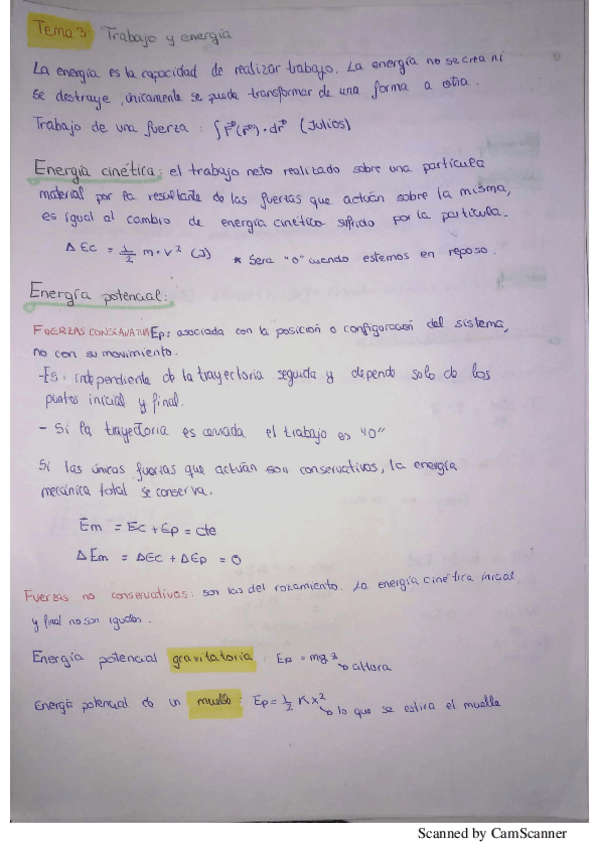 Tema 3: Trabajo y energía
La energía es la capacidad de realizar trabajo. La energía no se crea ni
se destruye, únicamente se puede transformar de una forma a otra.
Trabajo de una fuerza: ∫F⃗(r⃗)·dr⃗ (Julios)
Energía cinética: el trabajo neto realizado sobre una partícula
material por la resultante de las fuerzas que actúan sobre la misma,
es igual al cambio de energía cinética sufrido por la partícula.
Δ Ec = 1/2 m·v² (J) * Sera "0" cuando estemos en reposo.
Energía potencial:
FUERZAS CONSERVATIVAS Ep: asociada con la posición o configuración del sistema,
no con su movimiento.
-Es independiente de la trayectoria seguida y depende solo de los
puntos inicial y final.
- Si la trayectoria es cerrada el trabajo es "0"
Si las únicas fuerzas que actúan son conservativas, la energía
mecánica total se conserva.
Em = Ec + Ep = cte
ΔEm = ΔEc + ΔEp = 0
Fuerzas no conservativas: son las del rozamiento. La energía cinética inicial
y final no son iguales.
Energía potencial gravitatoria: Ep = mgz
altura
Energía potencial de un muelle: Ep = 1/2 Kx²
lo que se estira el muelle
Scanned by CamScanner